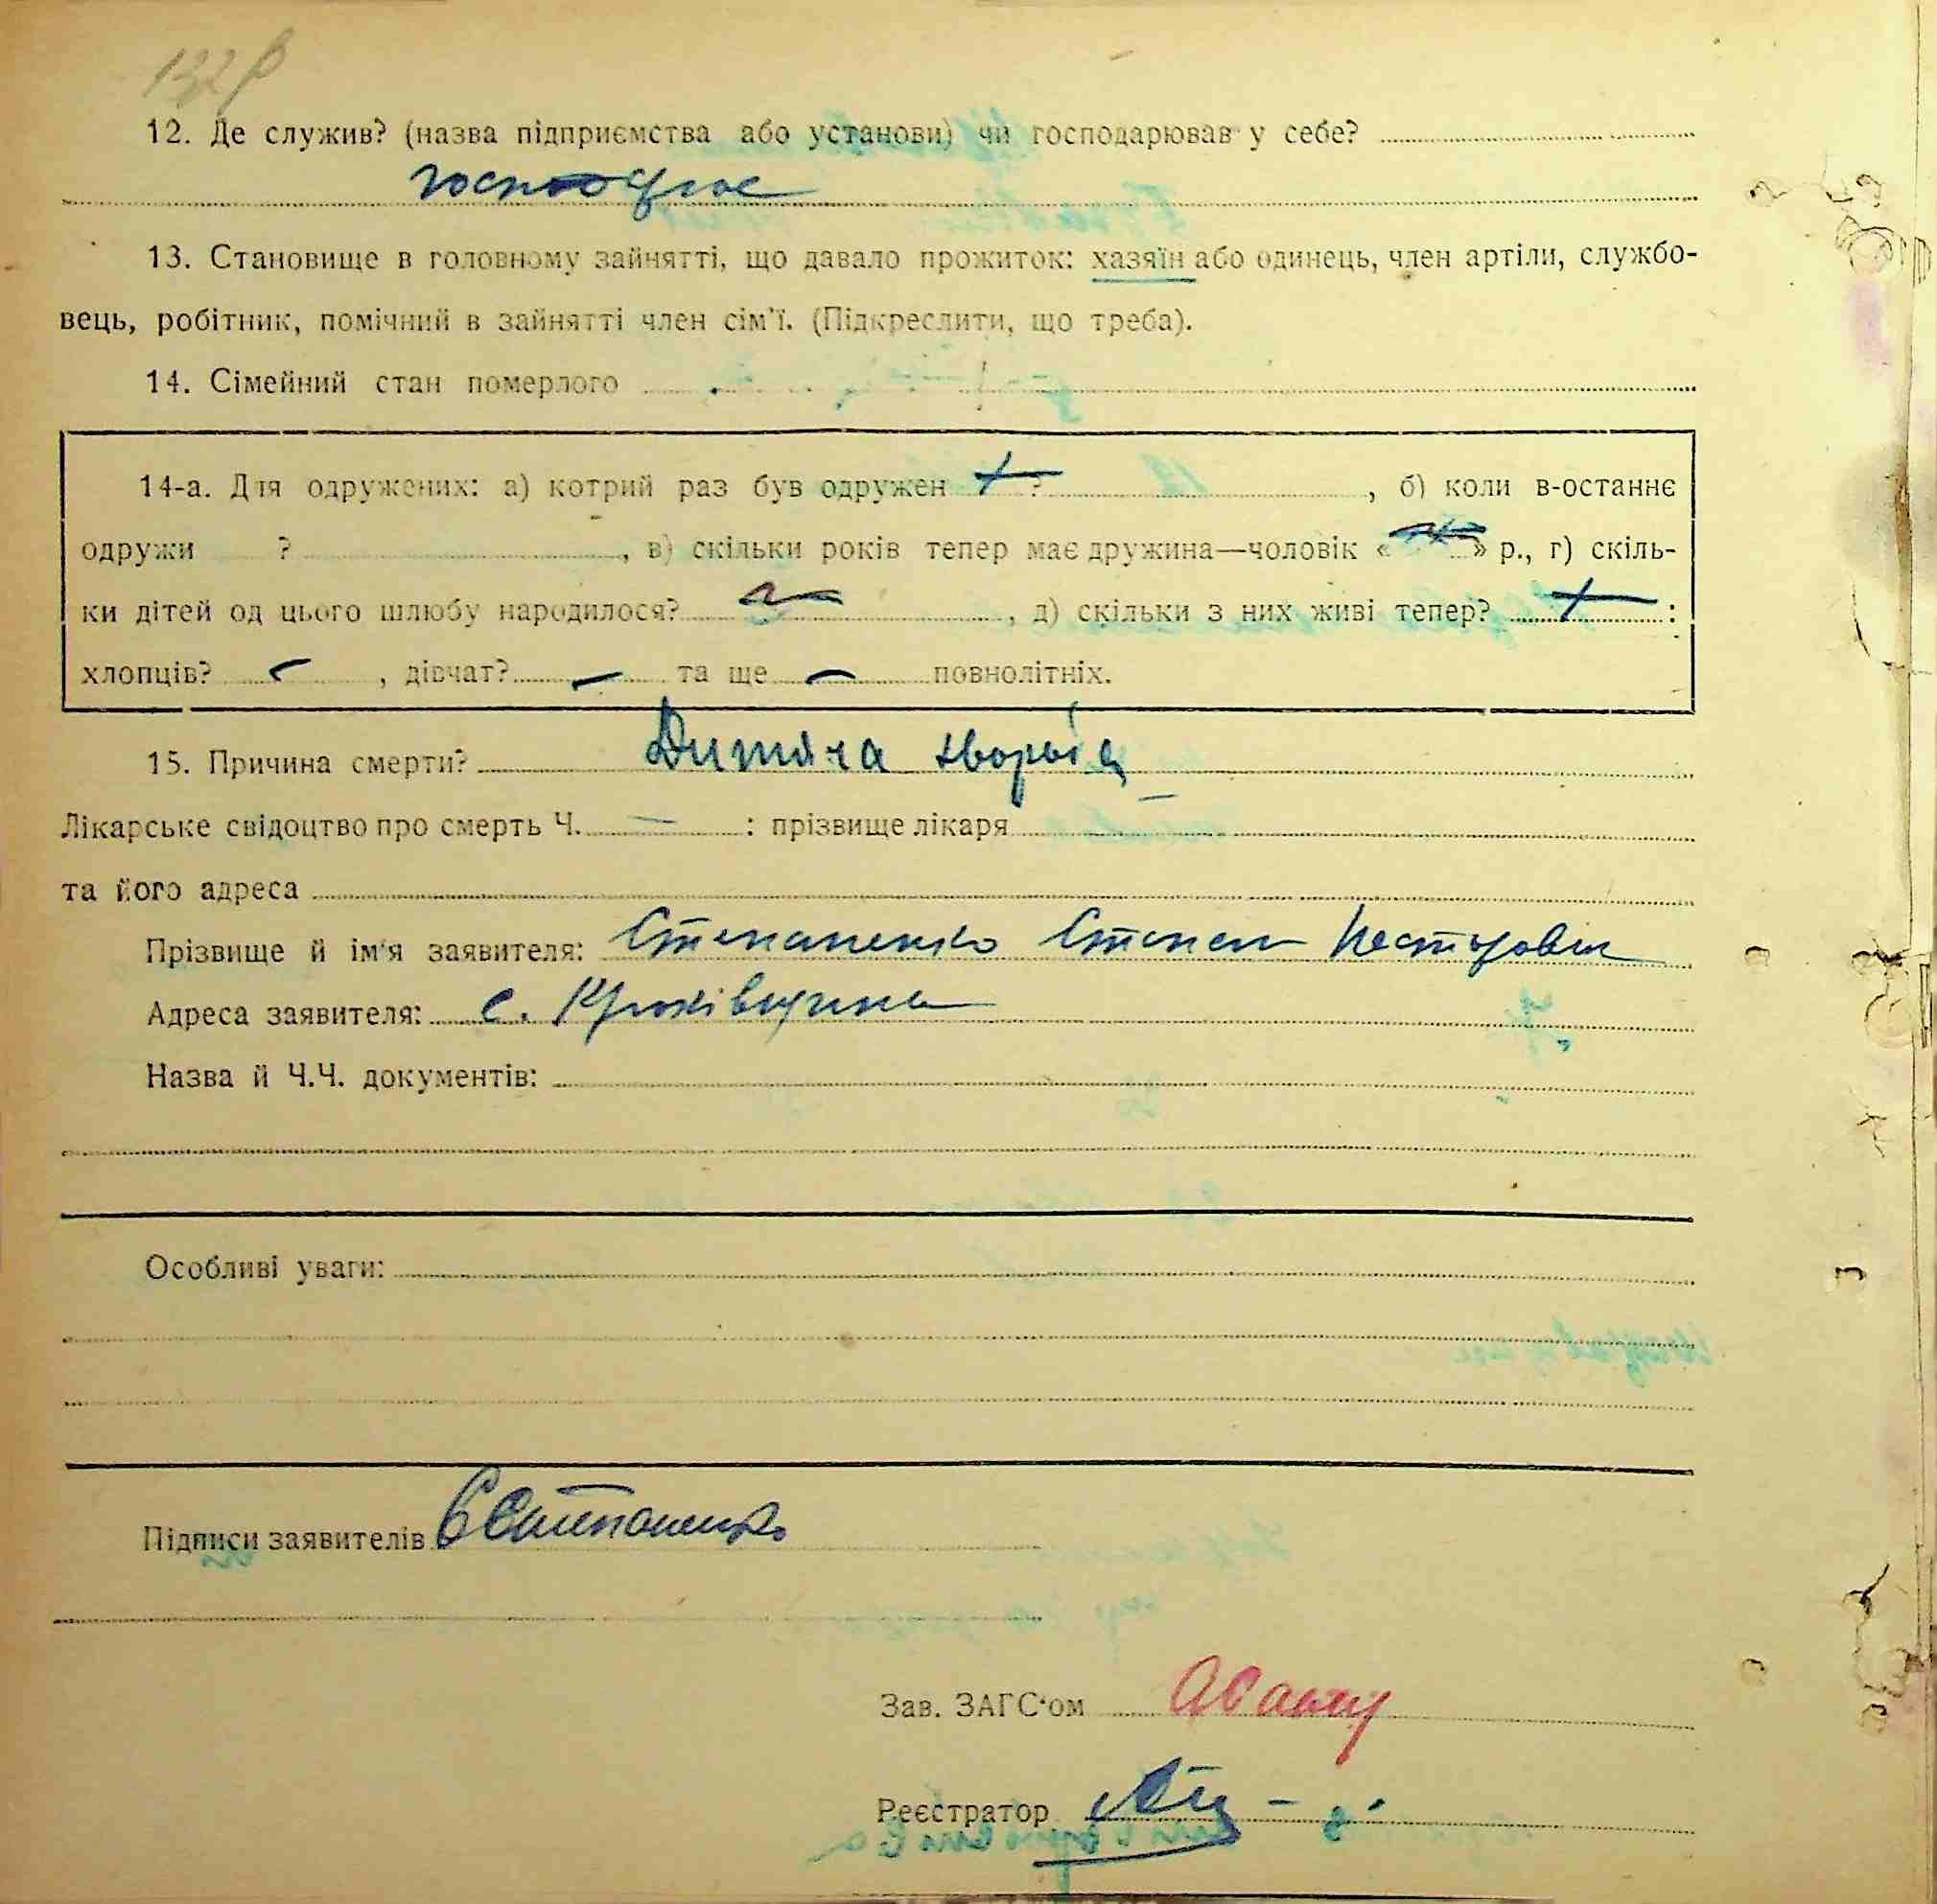 132
12. Де служив? (назва підприємства або установи) чи господарював у себе?
13. Становище в головному зайнятті, що давало прожиток: хазяїн або одинець, член артіли, службо-
вець, робітник, помічний в зайнятті член сім'ї. (Підкреслити, що треба).
14. Сімейний стан померлого
14-а. Для одружених: а) котрий раз був одружен ?, б) коли в-останнє
одружи ?, в) скільки років тепер має дружина—чоловік « » р., г) скіль-
ки дітей од цього шлюбу народилося?, д) скільки з них живі тепер? :
хлопців? , дівчат? та ще повнолітніх.
15. Причина смерти? Дитяча хвороба
Лікарське свідоцтво про смерть Ч. — : прізвище лікаря
та його адреса
Прізвище й ім'я заявителя: Степаненко Степан Нестерович
Адреса заявителя: с.
Назва й Ч.Ч. документів:
Особливі уваги:
Підписи заявителів ССтепаненко
Зав. ЗАГС'ом
Реєстратор